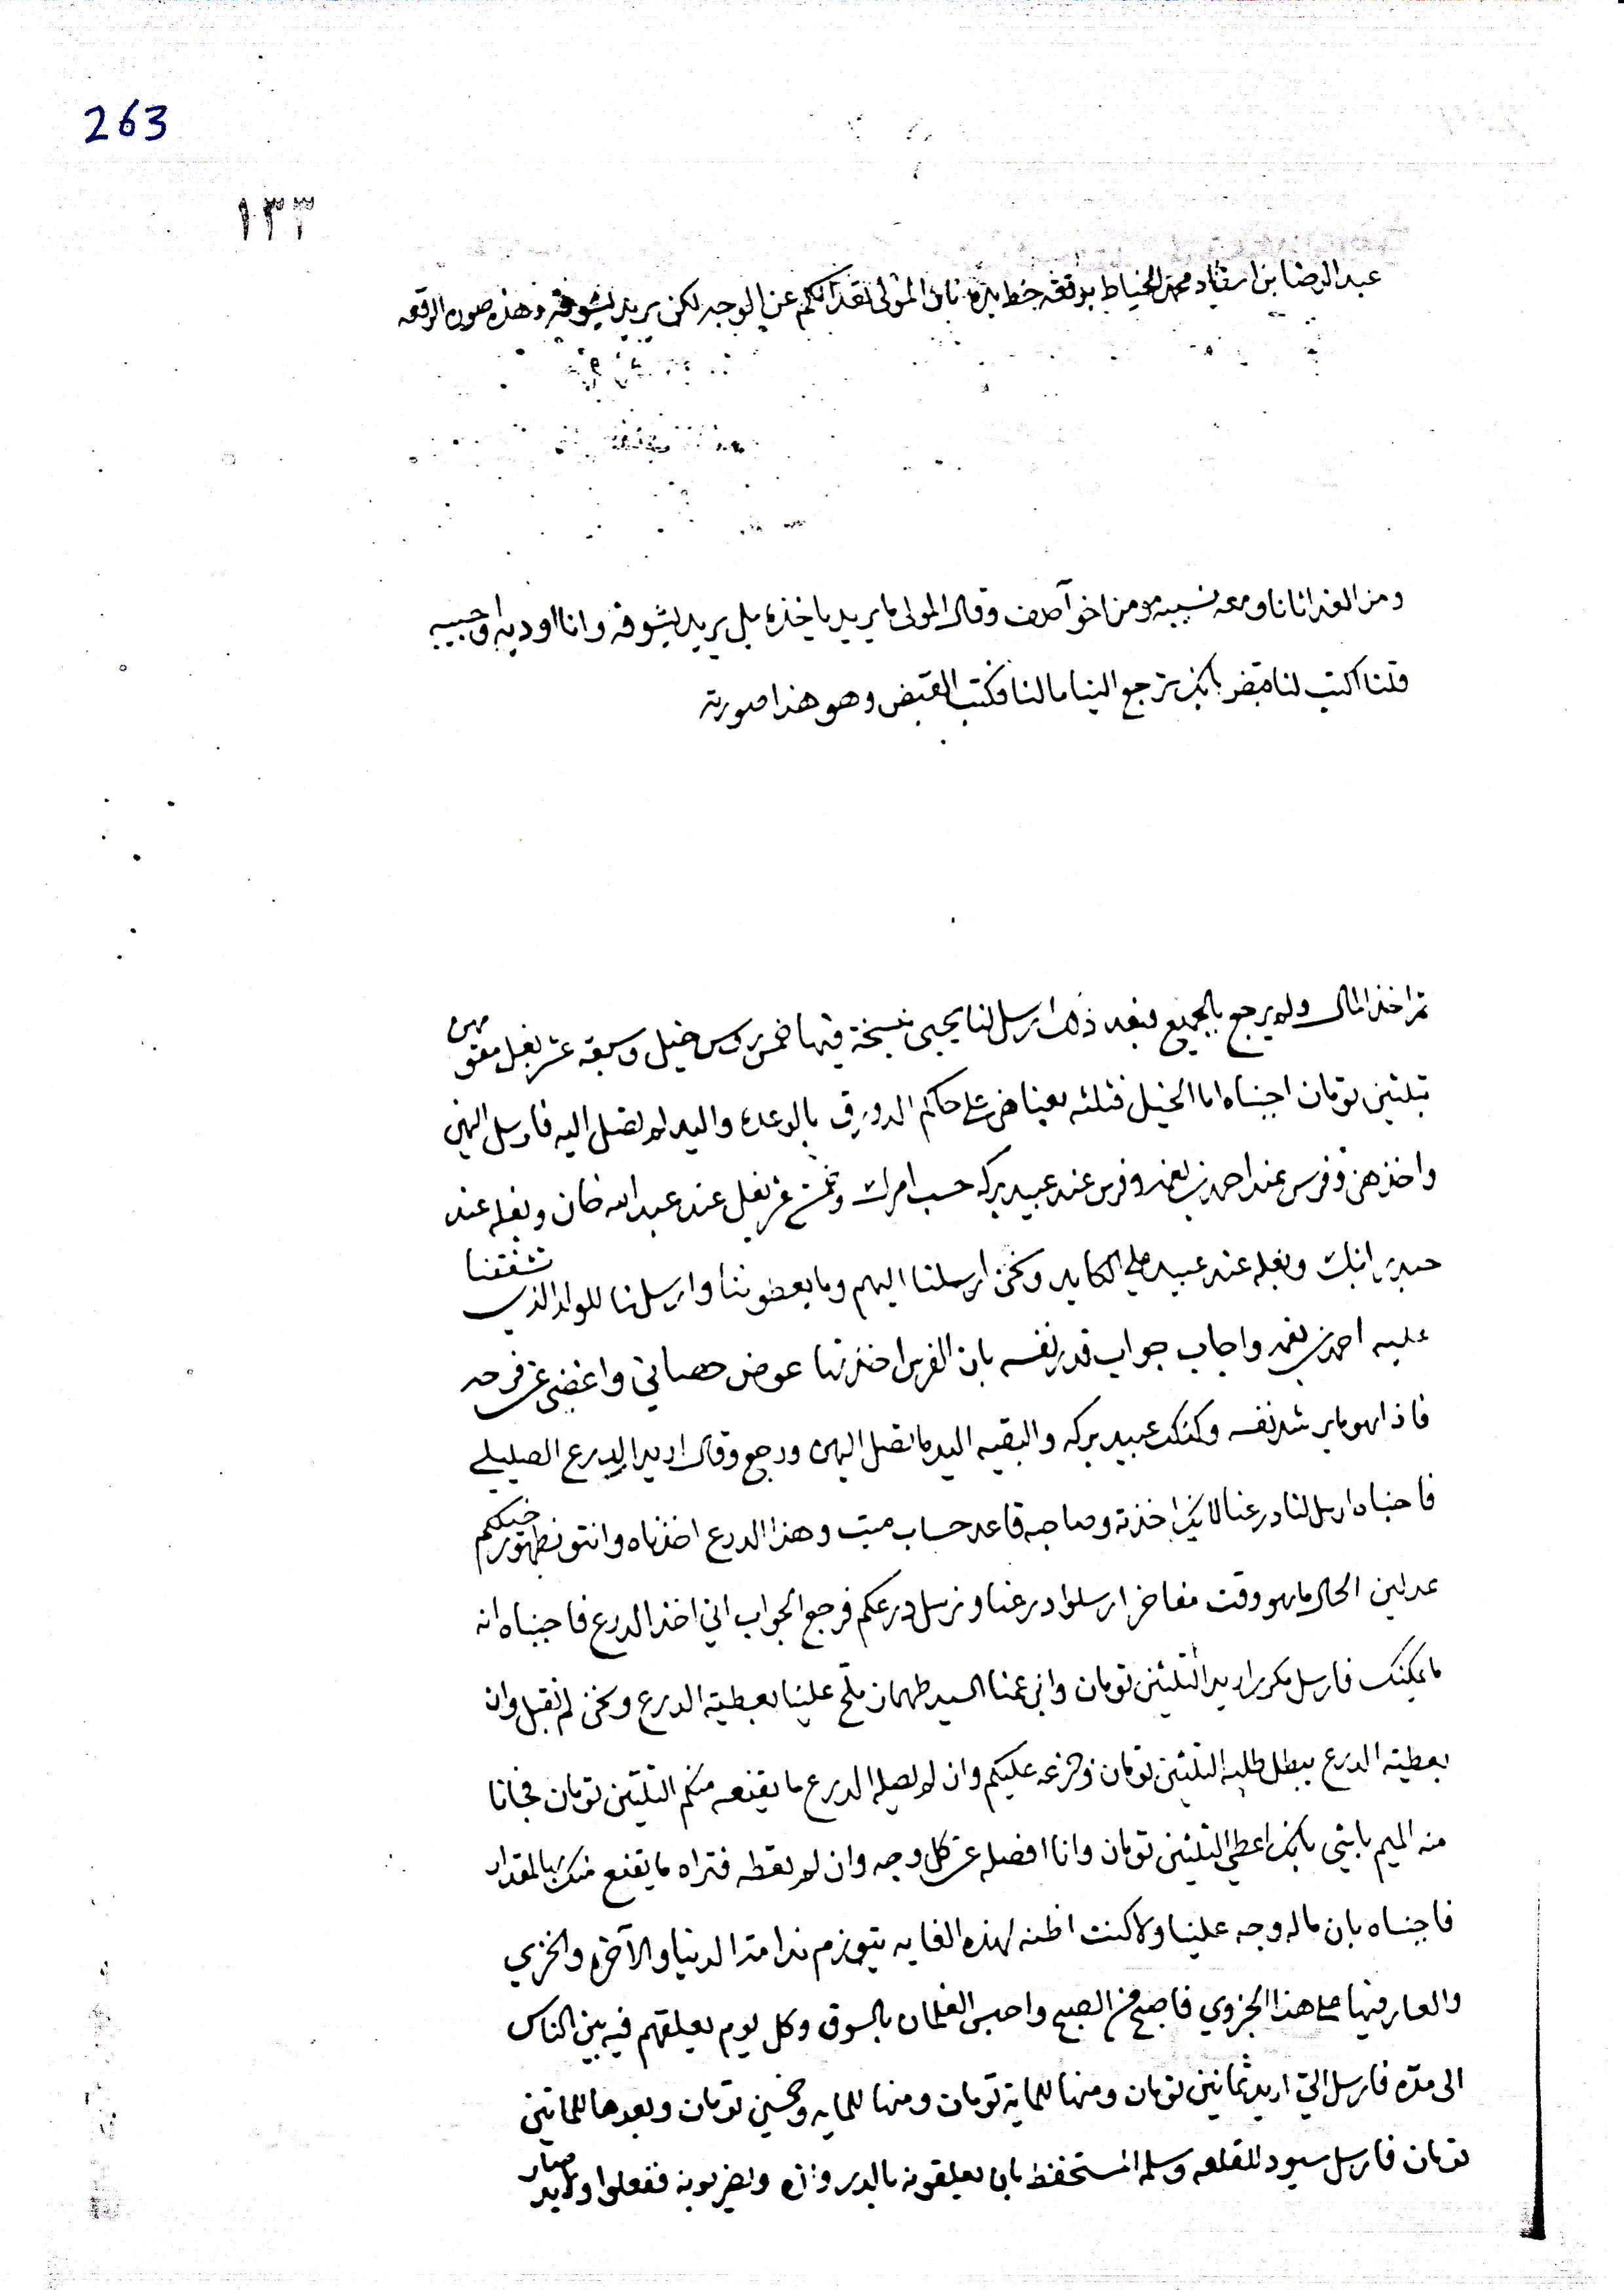 263
١٣٣
عبد الرضا بن استاد محمد الخياط برقعه خط يده بان المولى لكم عن الوجه لكن يريد يشوفه وهذه صورة الرقعه
ومن الغد اتانا ومعه نسيبه مومن اخو آصف وقال المولى ما يريد ياخذه بل يريد يشوفه وانا اوديه واجيبه
قلنا اكتب لنا قبض بانك ترجع الينا مالنا فكتب القبض وهو هذا صورته
ثم اخذ المال ولم يرجع بالجميع فبعد ذلك ارسل لنا يحيى نسخة فيها خمس روس خيل وسبعة عشر بغل مقومهن
بثلثين تومان اجبناه اما الخيل فثلثه بعيناهن على حاكم الدورق بالوعده واليد لم تصل اليه فارسل اليهن
واخذهن وفرس عند احمد بن نعمه وفرس عند عبيد بركه حسب امرك وخمسة عشر بغل عند عبد الله خان وبغله عند
حيدر اتابك وبغله عند عبيد علي الكايد ونحن ارسلنا اليهم وما يعطوننا وارسلنا للولد الذي تشفقنا
عليه احمد بن نعمه واجاب جواب قدر نفسه بان الفرس اخذتها عوض حصاني واغضي عن
فاذا هو ما يرشد نفسه وكذلك عبيد بركه والبقيه اليد ما تصل اليهن ورجع وقال اريد الدرع الصليلي
فاجبناه ارسل لنا درعنا لانك اخذته وصاحبه قاعد حساب ميت وهذا الدرع اخذناه وانتو بظهور خيلكم
عدلين الحال ما هو وقت مفاخر ارسلوا درعنا ونرسل درعكم فرجع الجواب اني اخذ الدرع فاجبناه انه
ما يمكنك فارسل مكرر اريد الثلثين تومان وابن عمنا السيد طهماز ملح علينا بعطية الدرع ونحن لم نقبل وان
بعطية الدرع يبطل طلبه الثلثين تومان عليكم وان لم يصله الدرع ما يقنعه منكم الثلثين تومان فجانا
منه الميم بابتي بانك اعطي الثلثين تومان وانا افصله عن كل وجه وان لم تعطه فتراه ما يقنع منك بهالمقدار
فاجبناه بان ماله وجه علينا ولا كنت اظنه لهذه الغايه يتورم ندامة الدنيا والآخره والخزي
والعار فيها على هذا الجزوي فاصبح من الصبح واحبس الغلمان بالسوق وكل يوم يعلقهم فيه بين الناس
الى مدة فارسل الي اريد ثمانين تومان ومنها للمايه تومان ومنها للمايه وخمسين تومان وبعدها للماتين
تومان فارسل سيود للقلعه وسلمه المستحفظ بان يعلقونه بالدروازه ويضربونه ففعلوا وصار